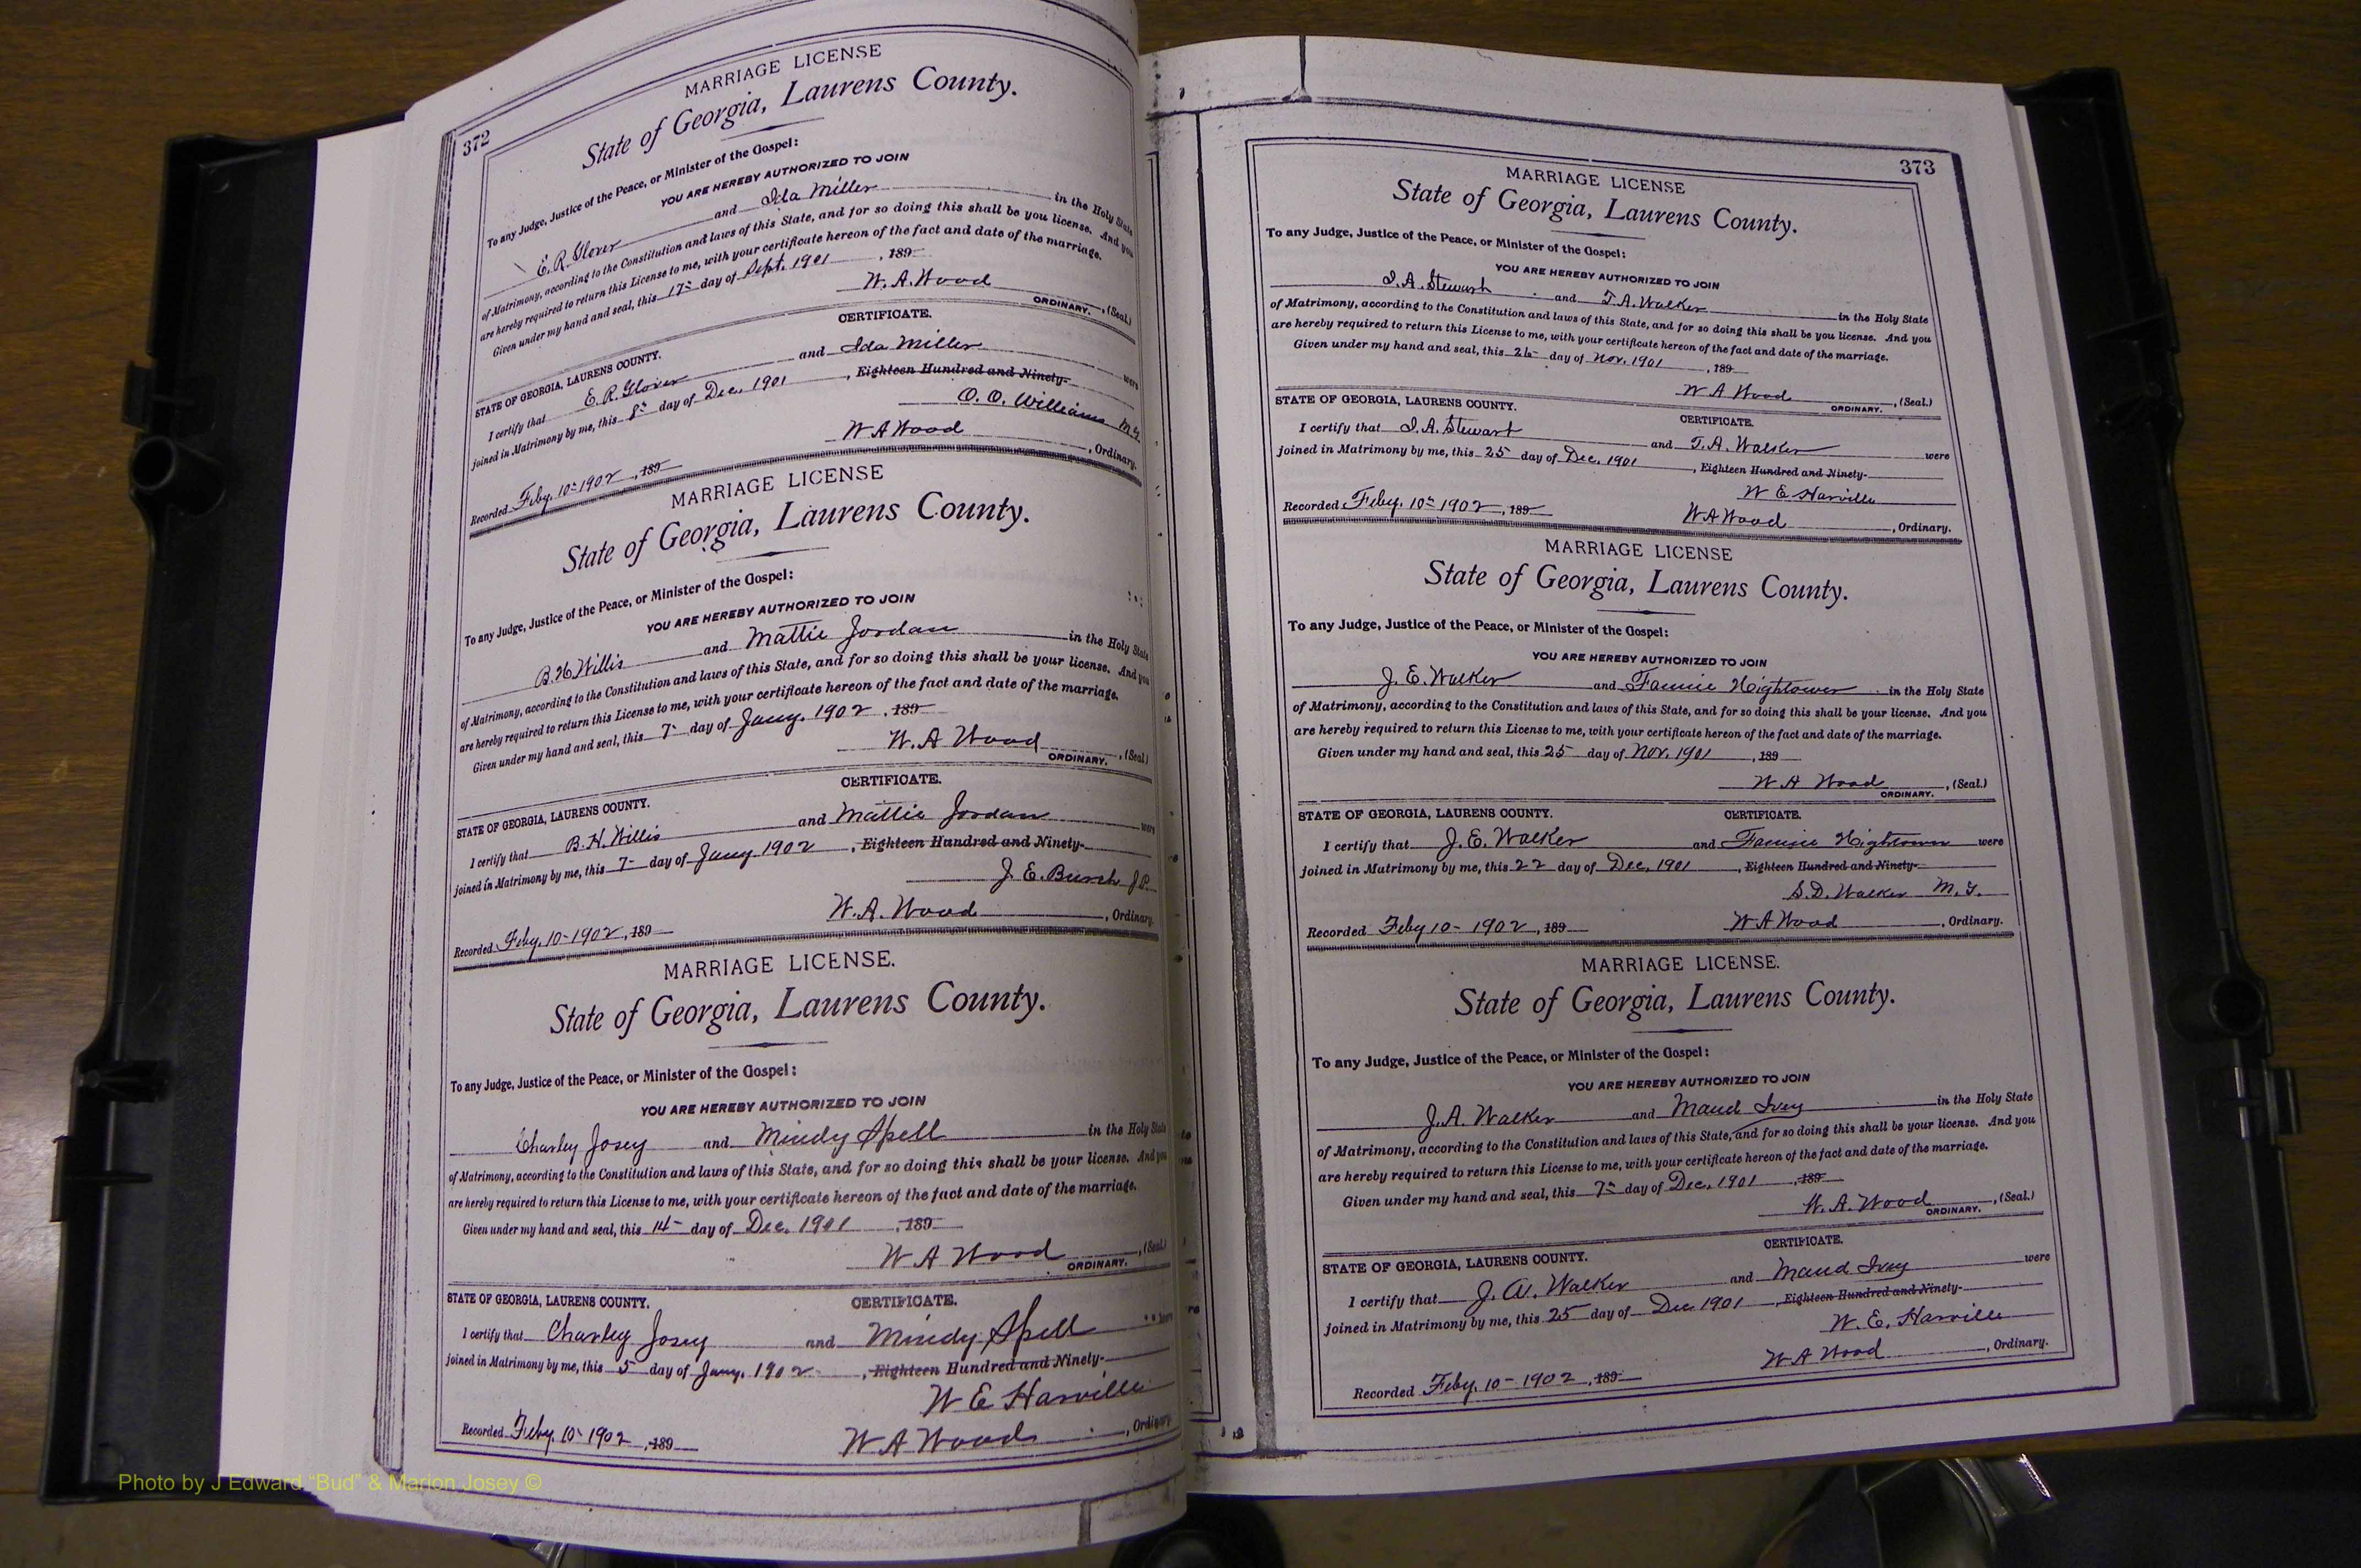 372
MARRIAGE LICENSE
State of Georgia, Laurens County.
To any Judge, Justice of the Peace, or Minister of the Gospel:
YOU ARE HEREBY AUTHORIZED TO JOIN
E. R. Glover and Ida Miller in the Holy State
of Matrimony, according to the Constitution and laws of this State, and for so doing this shall be you license. And you
are hereby required to return this License to me, with your certificate hereon of the fact and date of the marriage.
Given under my hand and seal, this 17 day of Sept. 1901, 189
W. A. Wood, (Seal.)
ORDINARY.
STATE OF GEORGIA, LAURENS COUNTY. CERTIFICATE.
I certify that E. R. Glover and Ida Miller were
joined in Matrimony by me, this 8 day of Dec. 1901, Eighteen Hundred and Ninety-
O. O. Williams M.G.
Recorded Feby. 10 1902, 189 W A Wood, Ordinary.
MARRIAGE LICENSE
State of Georgia, Laurens County.
To any Judge, Justice of the Peace, or Minister of the Gospel:
YOU ARE HEREBY AUTHORIZED TO JOIN
B. H. Willis and Mattie Jordan in the Holy State
of Matrimony, according to the Constitution and laws of this State, and for so doing this shall be your license. And you
are hereby required to return this License to me, with your certificate hereon of the fact and date of the marriage.
Given under my hand and seal, this 7 day of Jany. 1902, 189
W. A Wood, (Seal)
ORDINARY.
STATE OF GEORGIA, LAURENS COUNTY. CERTIFICATE.
I certify that B. H. Willis and Mattie Jordan were
joined in Matrimony by me, this 7 day of Jany. 1902, Eighteen Hundred and Ninety-
J. E. Burch J.P.
Recorded Feby. 10-1902, 189 W. A. Wood, Ordinary.
MARRIAGE LICENSE.
State of Georgia, Laurens County.
To any Judge, Justice of the Peace, or Minister of the Gospel:
YOU ARE HEREBY AUTHORIZED TO JOIN
Charley Josey and Mindy Spell in the Holy State
of Matrimony, according to the Constitution and laws of this State, and for so doing this shall be your license. And you
are hereby required to return this License to me, with your certificate hereon of the fact and date of the marriage.
Given under my hand and seal, this 14 day of Dec. 1901, 189
W A Wood, (Seal)
ORDINARY.
STATE OF GEORGIA, LAURENS COUNTY. CERTIFICATE.
I certify that Charley Josey and Mindy Spell were
joined in Matrimony by me, this 5 day of Jany. 1902, Eighteen Hundred and Ninety-
W E Harville
Recorded Feby. 10 1902, 189 W A Wood, Ordinary
373
MARRIAGE LICENSE
State of Georgia, Laurens County.
To any Judge, Justice of the Peace, or Minister of the Gospel:
YOU ARE HEREBY AUTHORIZED TO JOIN
I. A. Stewart and T. A. Walker in the Holy State
of Matrimony, according to the Constitution and laws of this State, and for so doing this shall be you license. And you
are hereby required to return this License to me, with your certificate hereon of the fact and date of the marriage.
Given under my hand and seal, this day of Nov. 1901, 189
W A Wood, (Seal.)
ORDINARY.
STATE OF GEORGIA, LAURENS COUNTY. CERTIFICATE.
I certify that I. A. Stewart and T. A. Walker were
joined in Matrimony by me, this 25 day of Dec. 1901, Eighteen Hundred and Ninety-
W E Harville
Recorded Feby. 10 1902, 189 W A Wood, Ordinary.
MARRIAGE LICENSE
State of Georgia, Laurens County.
To any Judge, Justice of the Peace, or Minister of the Gospel:
YOU ARE HEREBY AUTHORIZED TO JOIN
J. E. Walker and Fannie Hightower in the Holy State
of Matrimony, according to the Constitution and laws of this State, and for so doing this shall be your license. And you
are hereby required to return this License to me, with your certificate hereon of the fact and date of the marriage.
Given under my hand and seal, this 25 day of Nov. 1901, 189
W A Wood, (Seal.)
ORDINARY.
STATE OF GEORGIA, LAURENS COUNTY. CERTIFICATE.
I certify that J. E. Walker and Fannie Hightower were
joined in Matrimony by me, this 22 day of Dec. 1901, Eighteen Hundred and Ninety-
S. D. Walker M.G.
Recorded Feby 10- 1902, 189 W A Wood, Ordinary.
MARRIAGE LICENSE.
State of Georgia, Laurens County.
To any Judge, Justice of the Peace, or Minister of the Gospel:
YOU ARE HEREBY AUTHORIZED TO JOIN
J. A. Walker and Maud Ivey in the Holy State
of Matrimony, according to the Constitution and laws of this State, and for so doing this shall be your license. And you
are hereby required to return this License to me, with your certificate hereon of the fact and date of the marriage.
Given under my hand and seal, this 7 day of Dec. 1901, 189
W. A. Wood, (Seal.)
ORDINARY.
STATE OF GEORGIA, LAURENS COUNTY. CERTIFICATE.
I certify that J. A. Walker and Maud Ivey were
joined in Matrimony by me, this 25 day of Dec. 1901, Eighteen Hundred and Ninety-
W. E. Harville
Recorded Feby. 10- 1902, 189 W A Wood, Ordinary.
Photo by J Edward "Bud" & Marion Josey ©